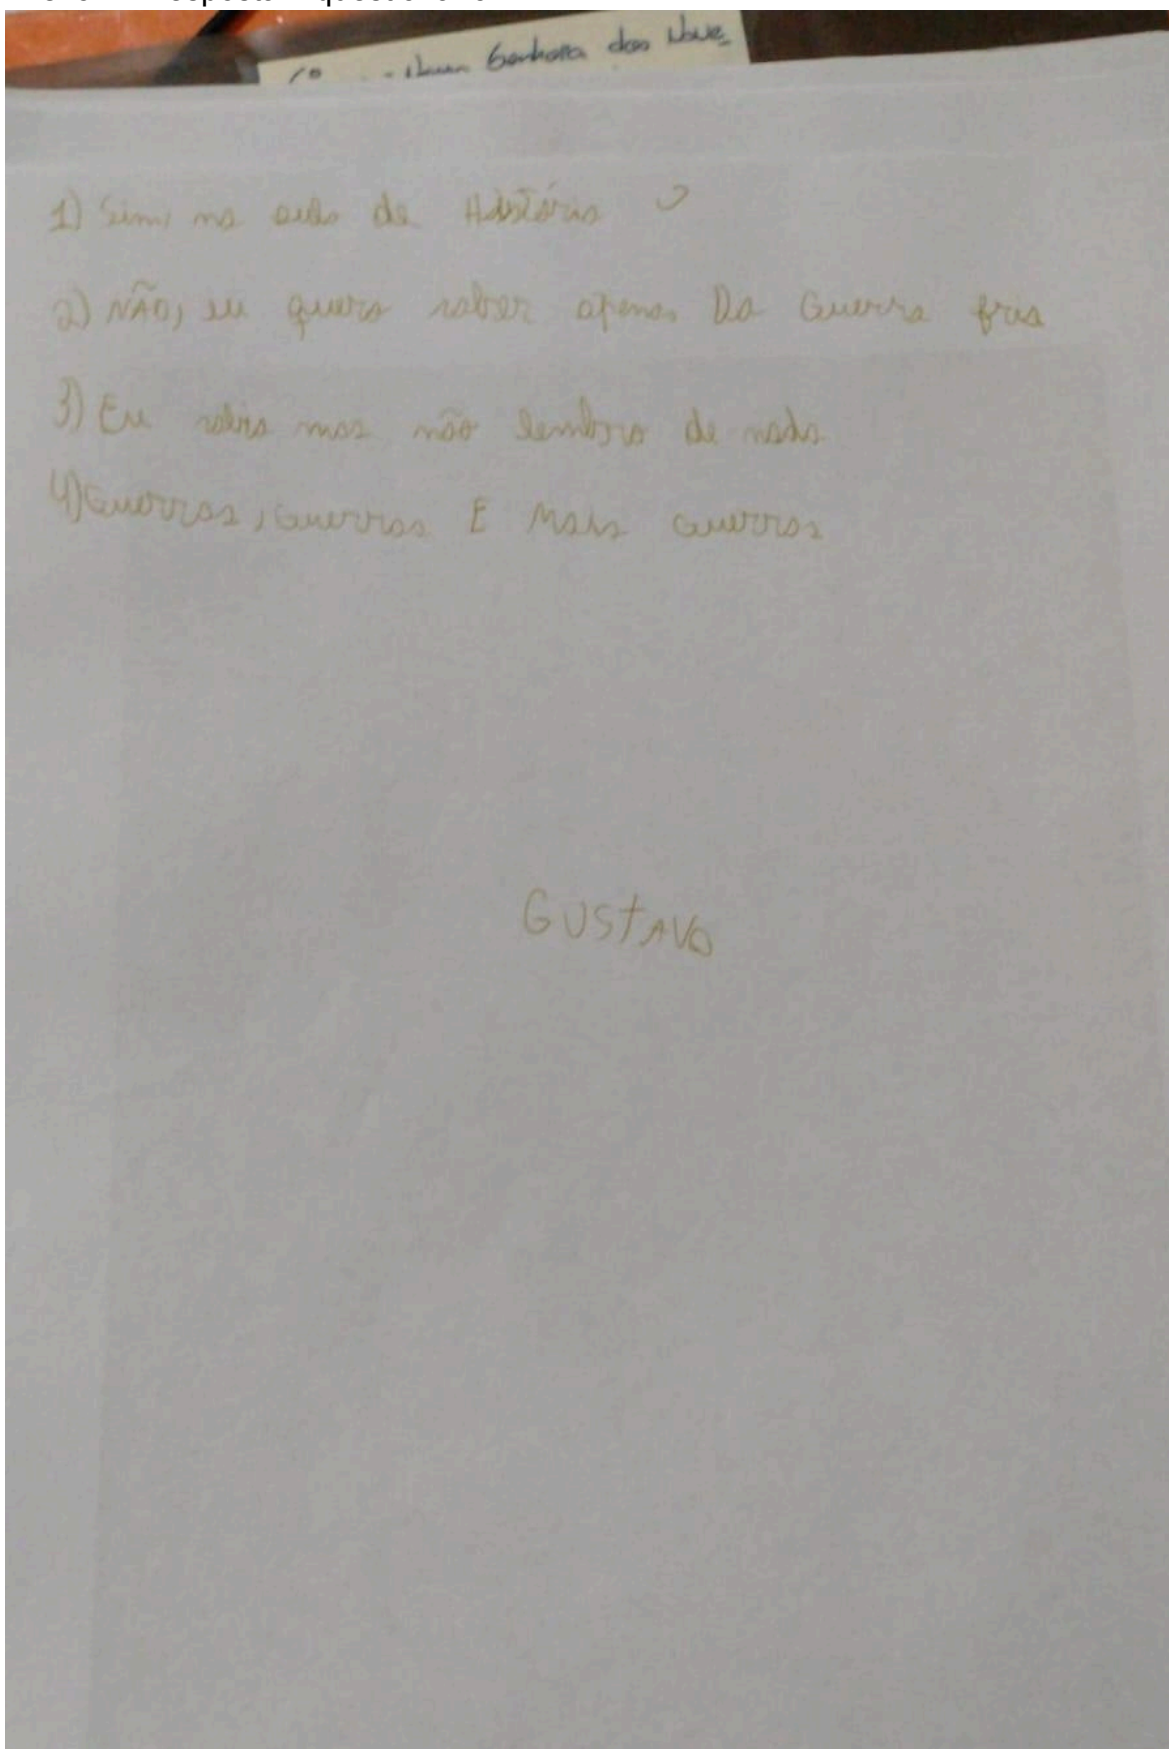 1º - Nossa Senhora das Neve
1) Sim, na aula de História
2) NÃO, eu quero saber apenas Da Guerra fria
3) Eu sabia mas não lembro de nada
4) Guerras, Guerras E Mais Guerras
GUSTAVO